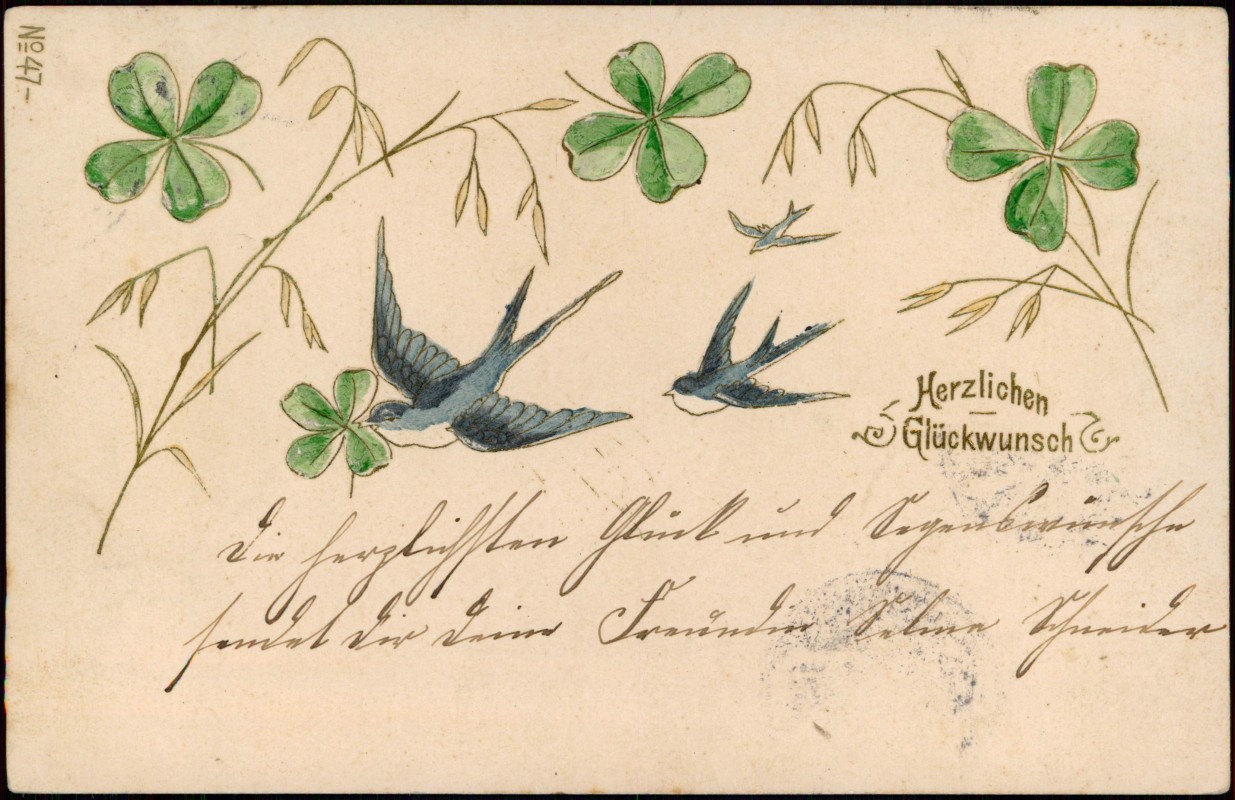 No 47-
Herzlichen
Glückwunsch
Die herzlichsten Glück und Segenswünsche
sendet dir deine Freundin Selma Schneider